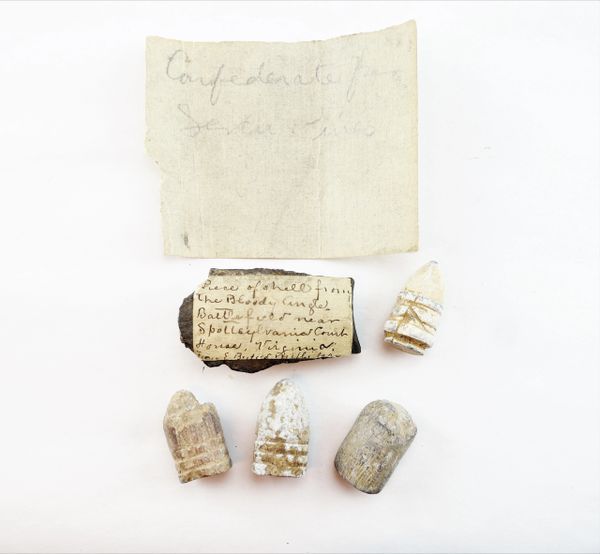 Confederate
Seven Pines
Piece of shell from
the Bloody Angle
Battlefield near
Spottsylvania Court
House, Virginia.